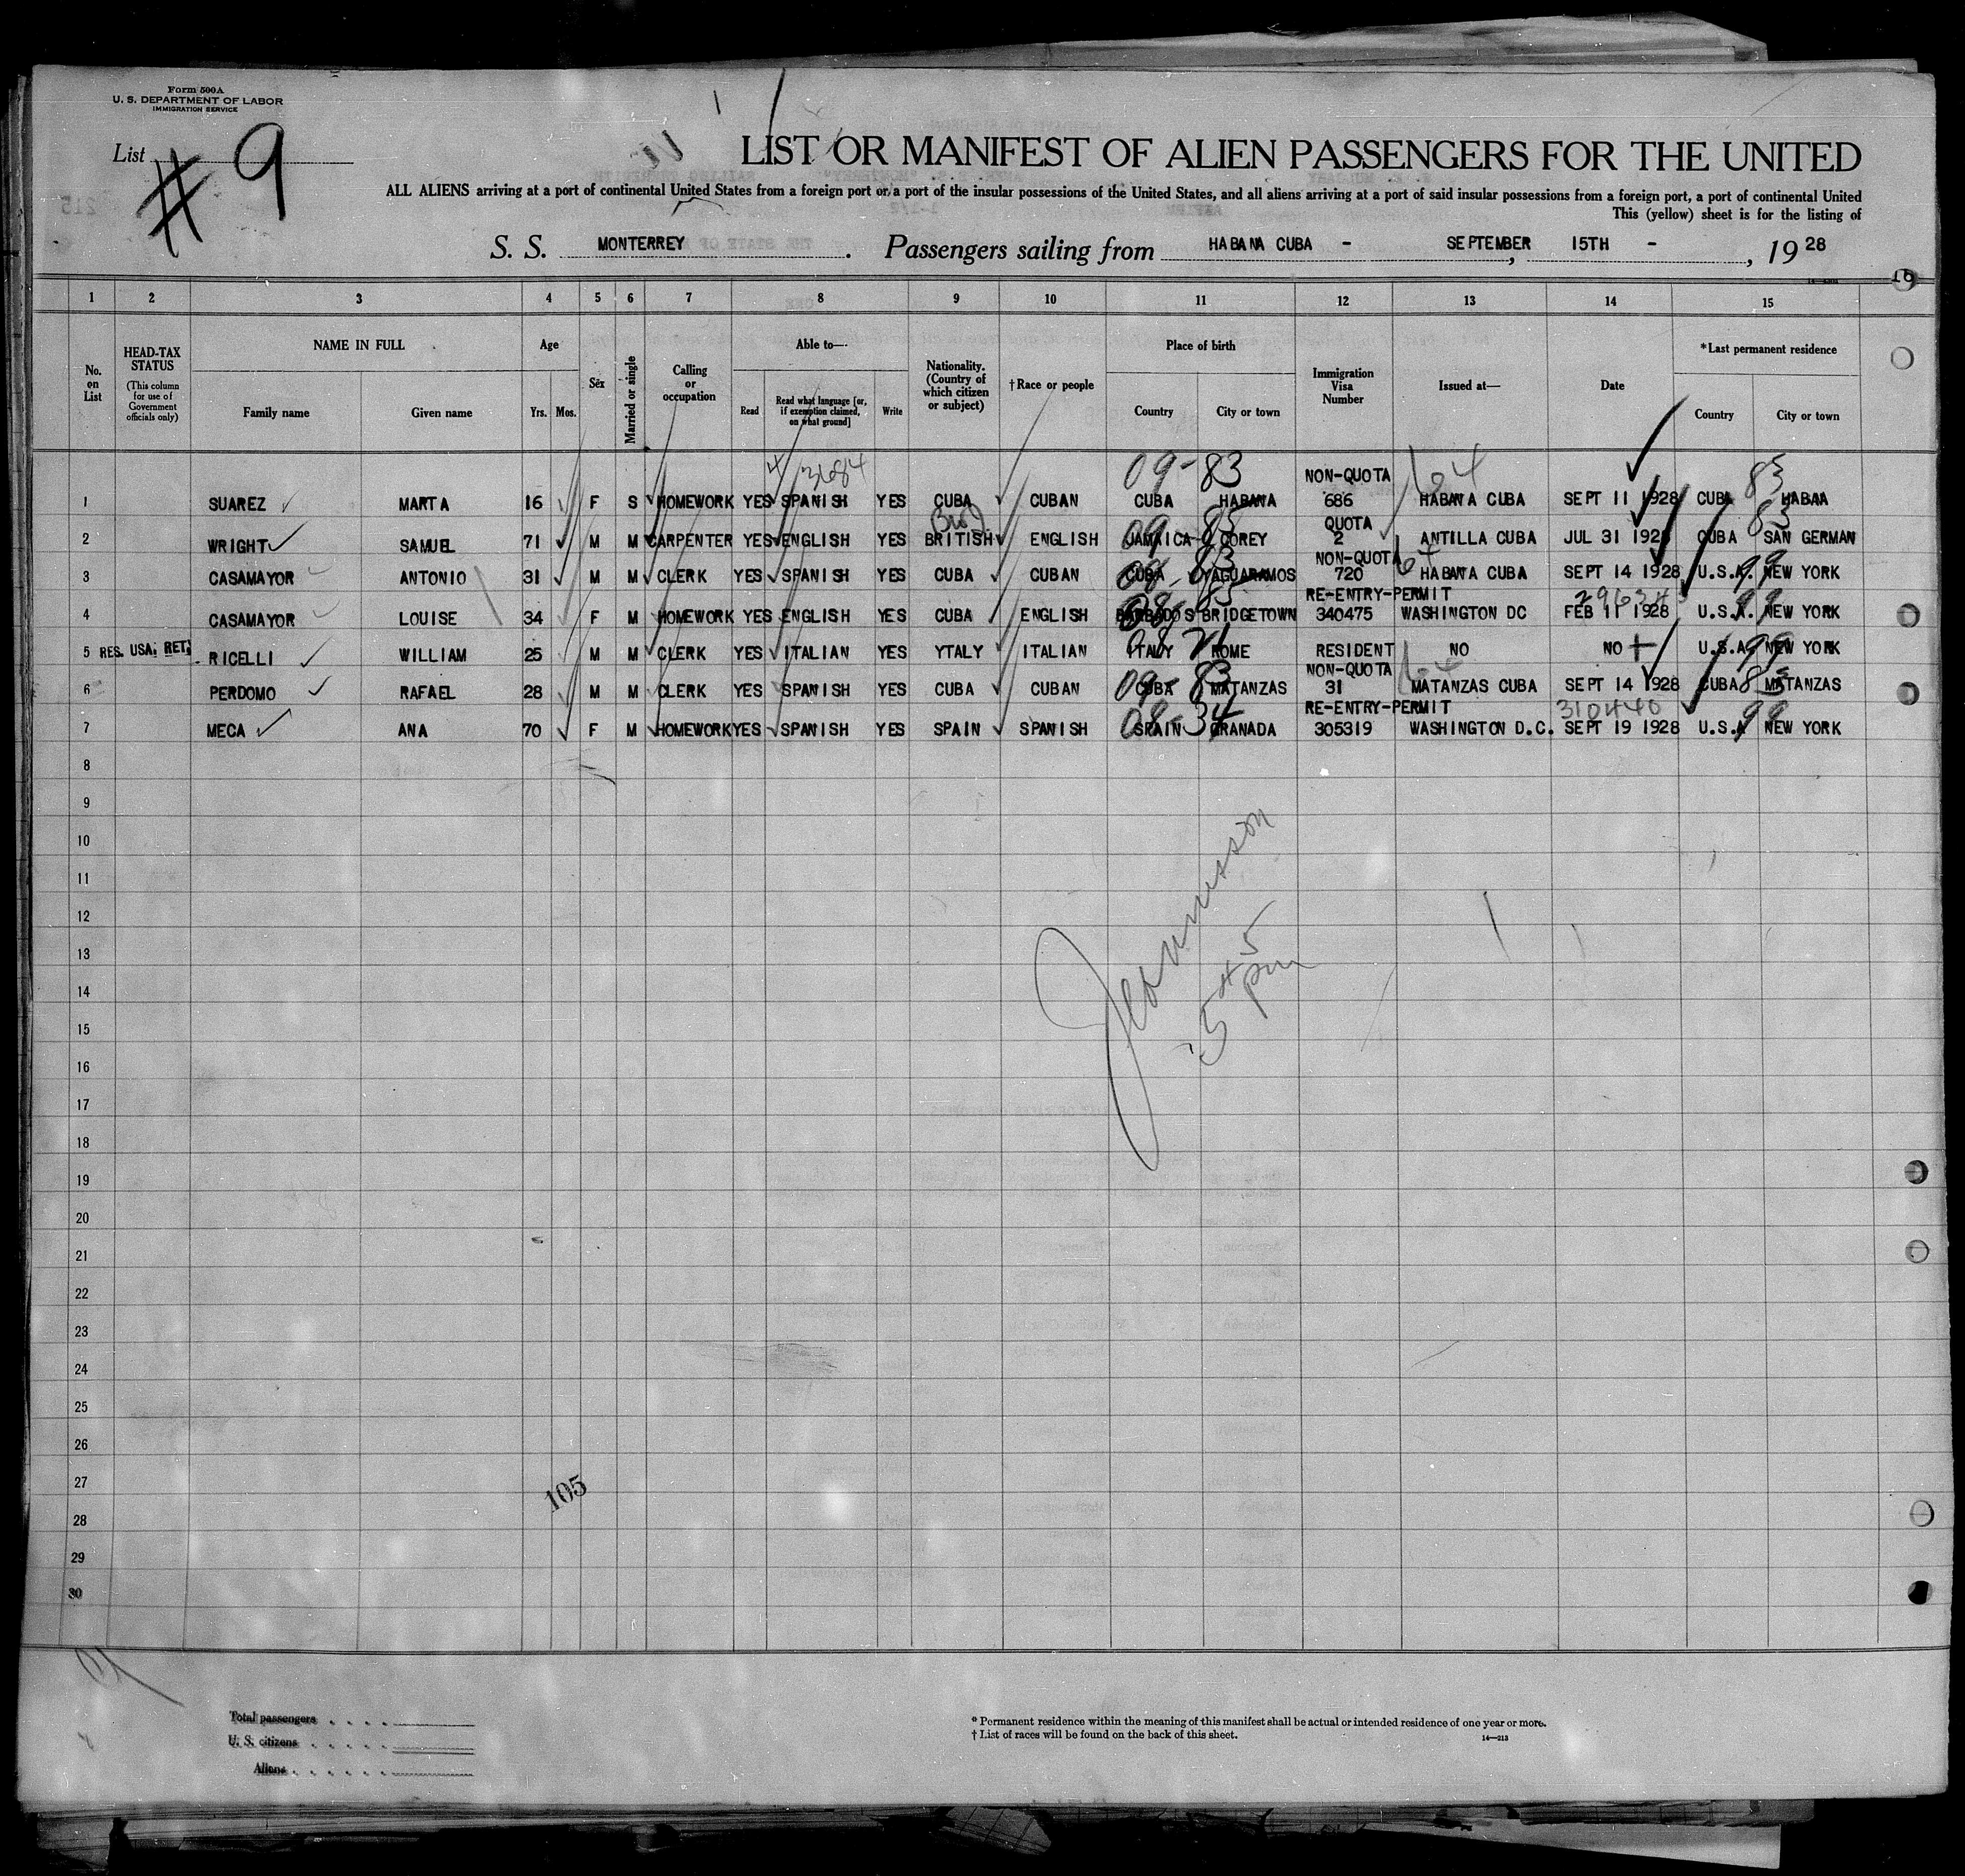 Form 500A
U. S. DEPARTMENT OF LABOR
IMMIGRATION SERVICE
List # 9
LIST OR MANIFEST OF ALIEN PASSENGERS FOR THE UNITED
ALL ALIENS arriving at a port of continental United States from a foreign port or a port of the insular possessions of the United States, and all aliens arriving at a port of said insular possessions from a foreign port, a port of continental United
This (yellow) sheet is for the listing of
S. S. MONTERREY. Passengers sailing from HABANA CUBA - SEPTEMBER, 15TH -, 1928
1 2 3 4 5 6 7 8 9 10 11 12 13 14 15
No. on List
HEAD-TAX STATUS (This column for use of Government officials only)
NAME IN FULL Family name Given name
Age Yrs. Mos.
Sex
Married or single
Calling or occupation
Able to— Read Read what language [or, if exemption claimed, on what ground] Write
Nationality. (Country of which citizen or subject)
†Race or people
Place of birth Country City or town
Immigration Visa Number
Issued at—
Date
*Last permanent residence Country City or town
3684 09-83 NON-QUOTA 64 83
1 SUAREZ MARTA 16 F S HOMEWORK YES SPANISH YES CUBA CUBAN CUBA HABANA 686 HABANA CUBA SEPT 11 1928 CUBA HABAA
QUOTA 83
2 WRIGHT SAMUEL 71 M M CARPENTER YES ENGLISH YES BRITISH ENGLISH JAMAICA COREY 2 ANTILLA CUBA JUL 31 1928 CUBA SAN GERMAN
NON-QUOTA
3 CASAMAYOR ANTONIO 31 M M CLERK YES SPANISH YES CUBA CUBAN CUBA YAGUARAMOS 720 HABANA CUBA SEPT 14 1928 U.S.A. NEW YORK
RE-ENTRY-PERMIT
4 CASAMAYOR LOUISE 34 F M HOMEWORK YES ENGLISH YES CUBA ENGLISH BARBADOS BRIDGETOWN 340475 WASHINGTON DC FEB 11 1928 U.S.A. NEW YORK
5 RES. USA. RET. RICELLI WILLIAM 25 M M CLERK YES ITALIAN YES YTALY ITALIAN ITALY ROME RESIDENT NO NO U.S.A. NEW YORK
NON-QUOTA
6 PERDOMO RAFAEL 28 M M CLERK YES SPANISH YES CUBA CUBAN CUBA MATANZAS 31 MATANZAS CUBA SEPT 14 1928 CUBA MATANZAS
RE-ENTRY-PERMIT 310440
7 MECA ANA 70 F M HOMEWORK YES SPANISH YES SPAIN SPANISH SPAIN GRANADA 305319 WASHINGTON D.C. SEPT 19 1928 U.S.A NEW YORK
8
9
10
11
12
13
14
15
16
17
18
19
20
21
22
23
24
25
26
27
105
28
29
30
Total passengers
U. S. citizens
Aliens
* Permanent residence within the meaning of this manifest shall be actual or intended residence of one year or more.
† List of races will be found on the back of this sheet.
14—213